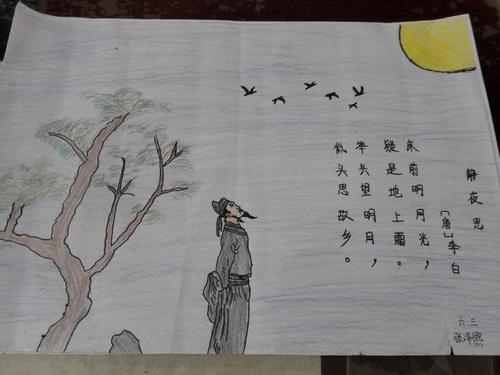 静夜思
[唐]李白
床前明月光，
疑是地上霜。
举头望明月，
低头思故乡。
六.三
张泽熙